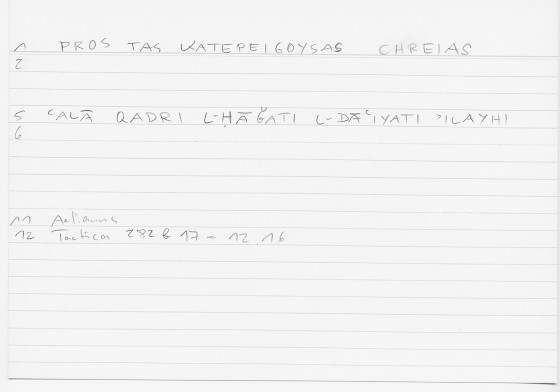 1 PROS TAS KATEPEIGOYSAS CHREIAS
2
5 ʿALĀ QADRI L-ḤĀǦATI L-DĀʿIYATI ʾILAYHI
6
11 Aelianus
12 Tactica 282 b 17 - 12.16